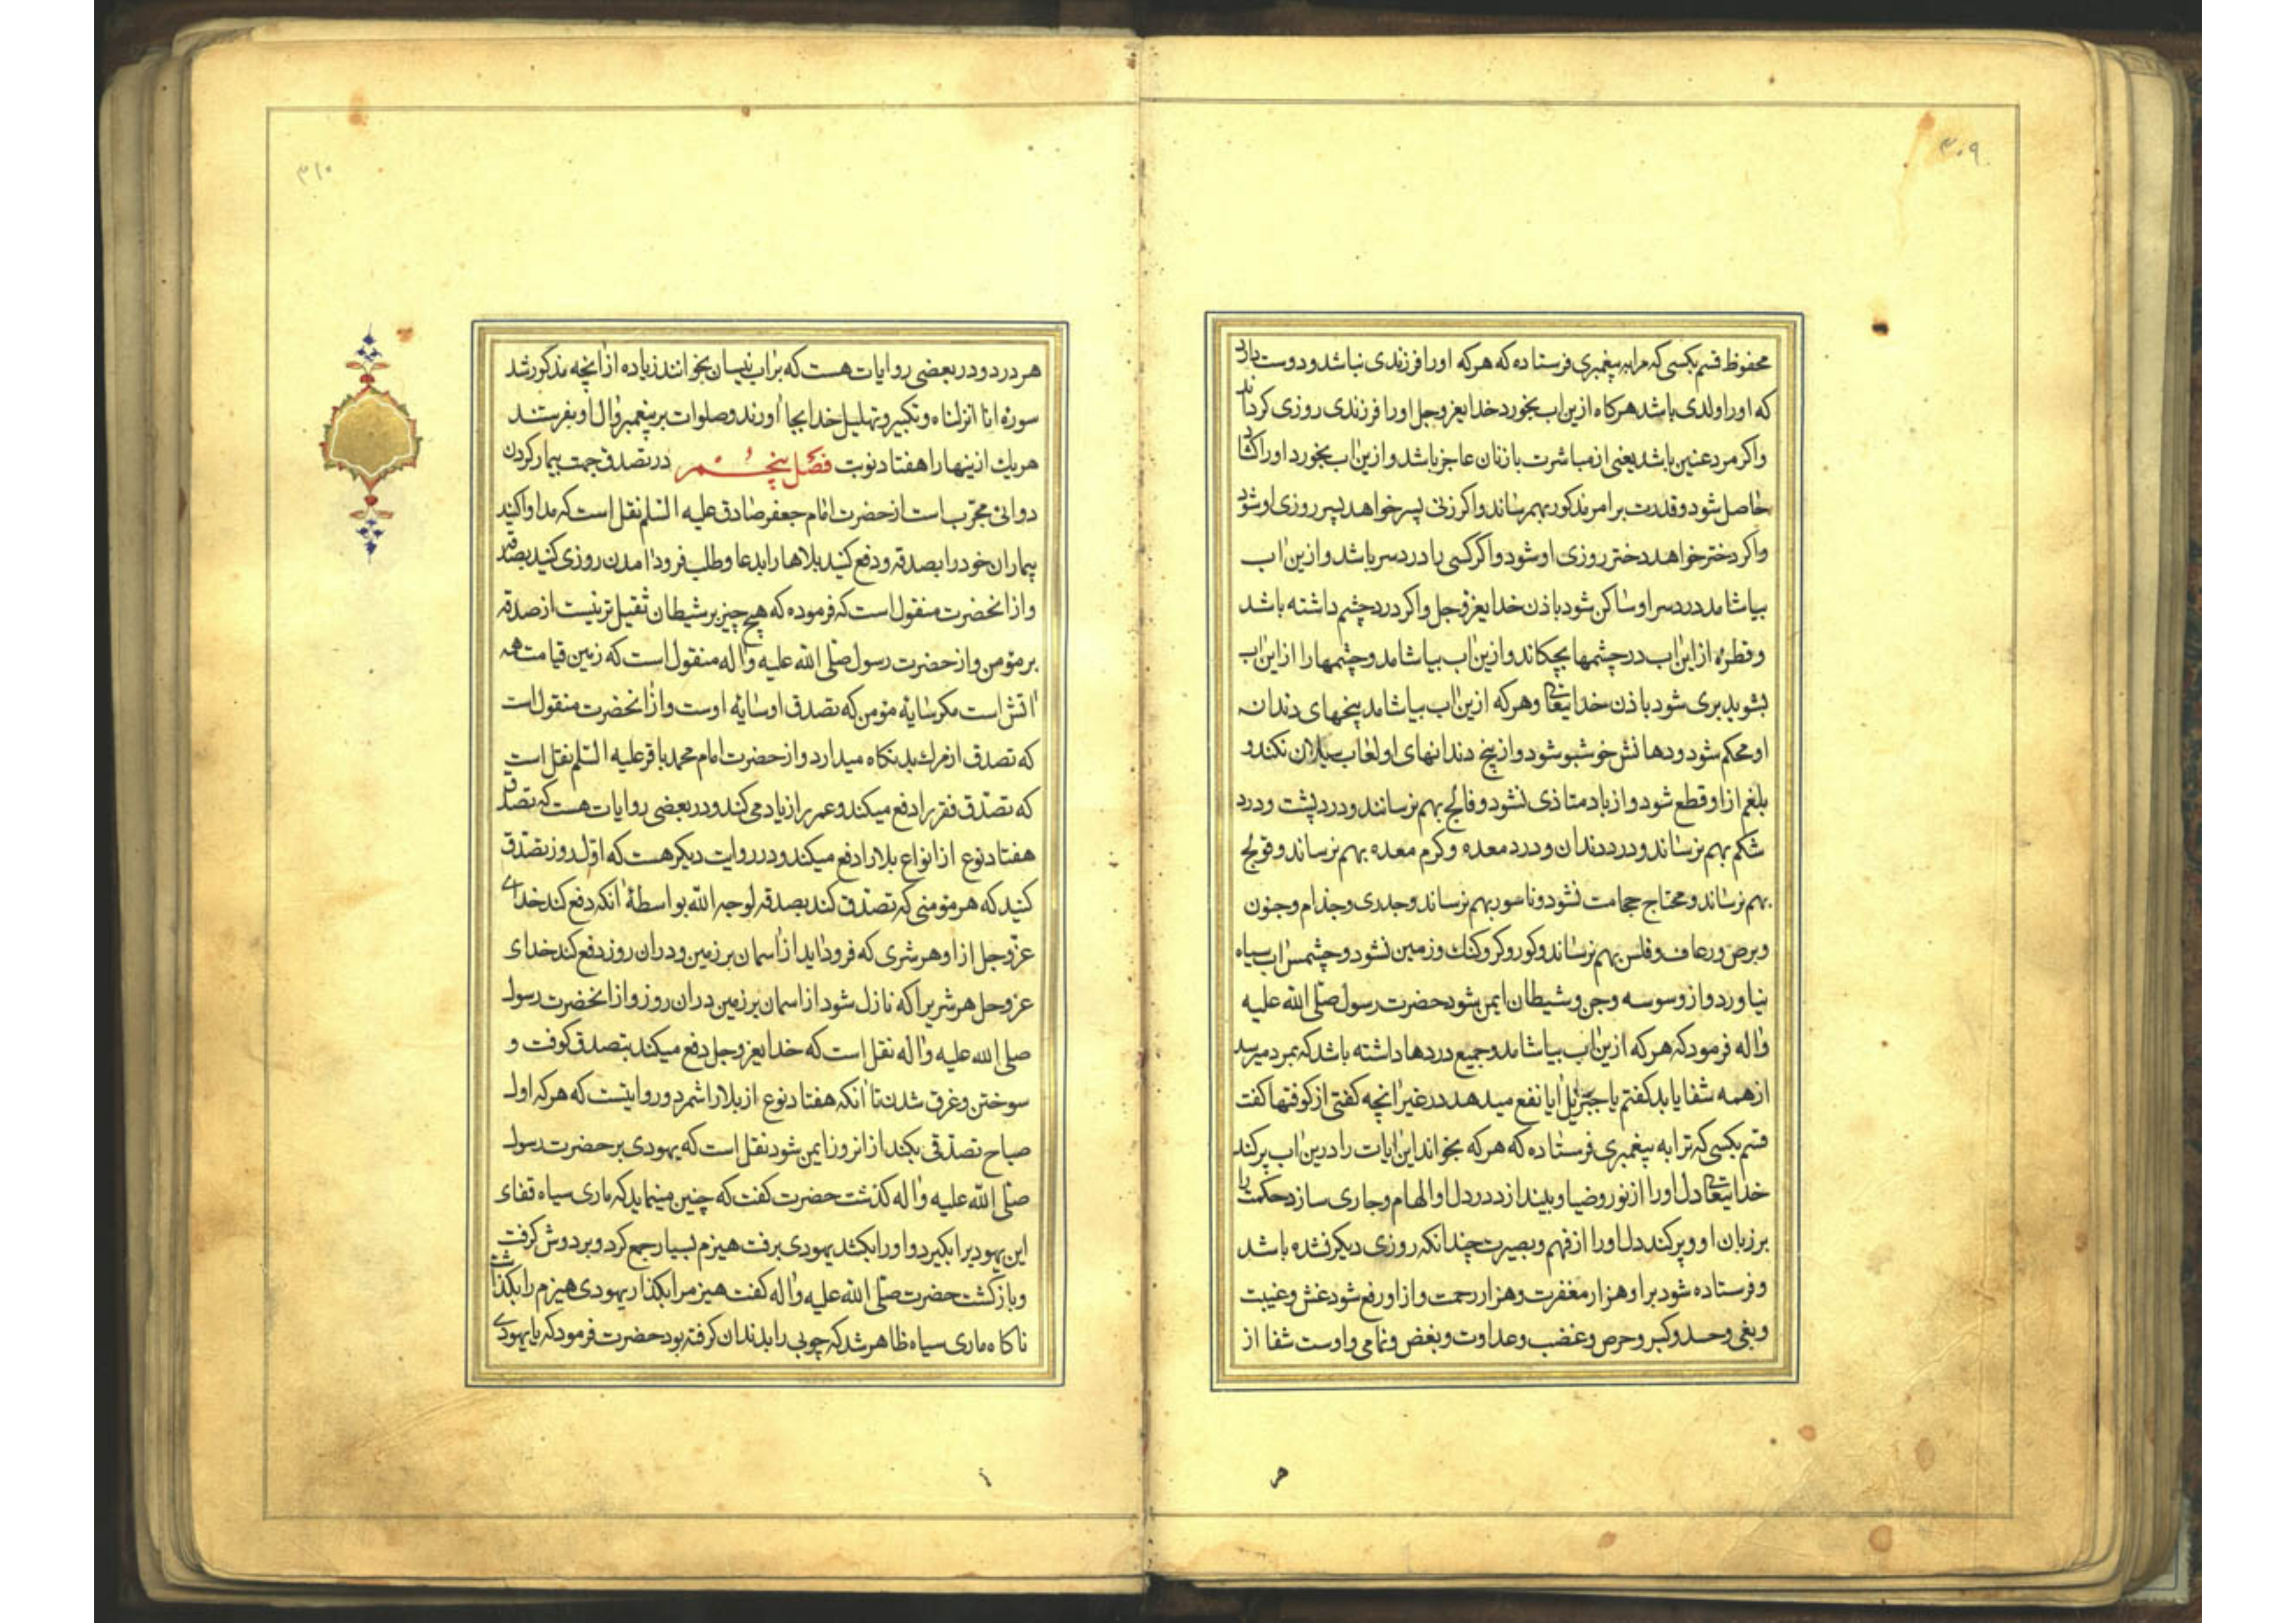 ۳۰۹
محفوظ قسم بکسی که مرا به پیغمبری فرستاده که هر که او را فرزندی نباشد و دوست دارد
که او را ولدی باشد هرکاه ازین اب بخورد خدایعزوجل او را فرزندی روزی کرداند
واکر مرد عنین باشد یعنی از مباشرت با زنان عاجز باشد و ازین اب بخورد او را کشاد
حاصل شود و قدرت بر امر مذکور بهم رساند واکر زنی پسر خواهد پسر روزی او شود
واکر دختر خواهد دختر روزی او شود واکر کسی را درد سر باشد و ازین اب
بیاشامد درد سر او ساکن شود باذن خدایعزوجل واکر درد چشم داشته باشد
و قطره از این اب در چشمها بچکاند و ازین اب بیاشامد و چشمها را از این اب
بشوید بری شود باذن خدایتعالی وهرکه ازین اب بیاشامد بیخهای دندان
او محکم شود و دهانش خوشبو شود و از بیخ دندانهای او لعاب سیلان نکند و
بلغم از او قطع شود و از باد متاذی نشود و فالج بهم نرسانند و درد پشت و درد
شکم بهم نرساند و درد دندان و درد معده و کرم معده بهم نرساند و قولنج
بهم نرساند و محتاج حجامت نشود و ناسور بهم نرساند وجدری وجذام وجنون
و برص ورعاف و فلس بهم نرساند و کور و کر و کنک و زمین نشود و چشمش اب سیاه
نیاورد و از وسوسه وجن و شیطان ایمن شود حضرت رسول صلی الله علیه
واله فرمود که هرکه ازین اب بیاشامد و جمیع دردها داشته باشد که بمردم میرسد
از همه شفا یابد کفتم یا جبرئیل ایا نفع میدهد در غیر انچه کفتی از کوفتها کفت
قسم بکسی که ترا به پیغمبری فرستاده که هرکه بخواند این ایات را درین اب پر کند
خدایتعالی دل او را از نور و ضیا و بیندازد در دل او الهام و جاری سازد حکمت را
بر زبان او و پر کند دل او را از فهم و بصیرت چندانکه روزی دیکر نشده باشد
و فرستاده شود بر او هزار مغفرت و هزار رحمت و از او رفع شود غش و غیبت
و بغی و حسد و کبر و حرص و غضب و عداوت و بغض و نمامی و اوست شفا از
هر
۳۱۰
هر درد و در بعضی روایات هست که بر اب نیسان بخوانند زیاده از انچه مذکور شد
سوره انا انزلناه و تکبیر و تهلیل خدا بجا اورند و صلوات بر پیغمبر وال او بفرستند
هر یک از ینها را هفتاد نوبت فصل پنجم در تصدق جهت بیمار کردن
دوائی مجرب است از حضرت امام جعفر صادق علیه السلم نقل است که مداوا کنید
بیماران خود را بصدقه و دفع کنید بلاها را بدعا و طلب فرود امدن روزی کنید بصدقه
و از انحضرت منقول است که فرموده که هیچ چیز بر شیطان ثقیل تر نیست از صدقه
بر مؤمن و از حضرت رسول صلی الله علیه واله منقول است که زمین قیامت همه
اتش است مکر سایه مؤمن که تصدق او سایه اوست و از انحضرت منقول است
که تصدق از مرک بد نکاه میدارد و از حضرت امام محمد باقر علیه السلم نقل است
که تصدق فقر را دفع میکند و عمر را زیاد می کند و در بعضی روایات هست که تصدق
هفتاد نوع از انواع بلا را دفع میکند و در روایت دیکر هست که اول روز تصدق
کنید که هر مؤمنی که تصدق کند بصدقه لوجه الله بواسطه انکه دفع کند خدای
عزوجل از او هر شری که فرود اید از اسمان بر زمین و در ان روز دفع کند خدای
عزوجل هر شر یرا که نازل شود از اسمان بر زمین در ان روز و از انحضرت رسول
صلی الله علیه واله نقل است که خدایعزوجل دفع میکند بتصدق کوفت و
سوختن و غرق شدن تا انکه هفتاد نوع از بلا را شمرد و روایتست که هرکه اول
صباح تصدقی بکند از انروز ایمن شود نقل است که یهودی بر حضرت رسول
صلی الله علیه واله کذشت حضرت کفت که چنین مینماید که ماری سیاه قفای
این یهود یرا بکیرد و او را بکشد یهودی برفت هیزم بسیار جمع کرد و بر دوش کرفت
و باز کشت حضرت صلی الله علیه واله کفت هیزم را بکذار یهودی هیزم را بکذاشت
ناکاه ماری سیاه ظاهر شد که چوبی را بدندان کرفته بود حضرت فرمود که یا یهودی